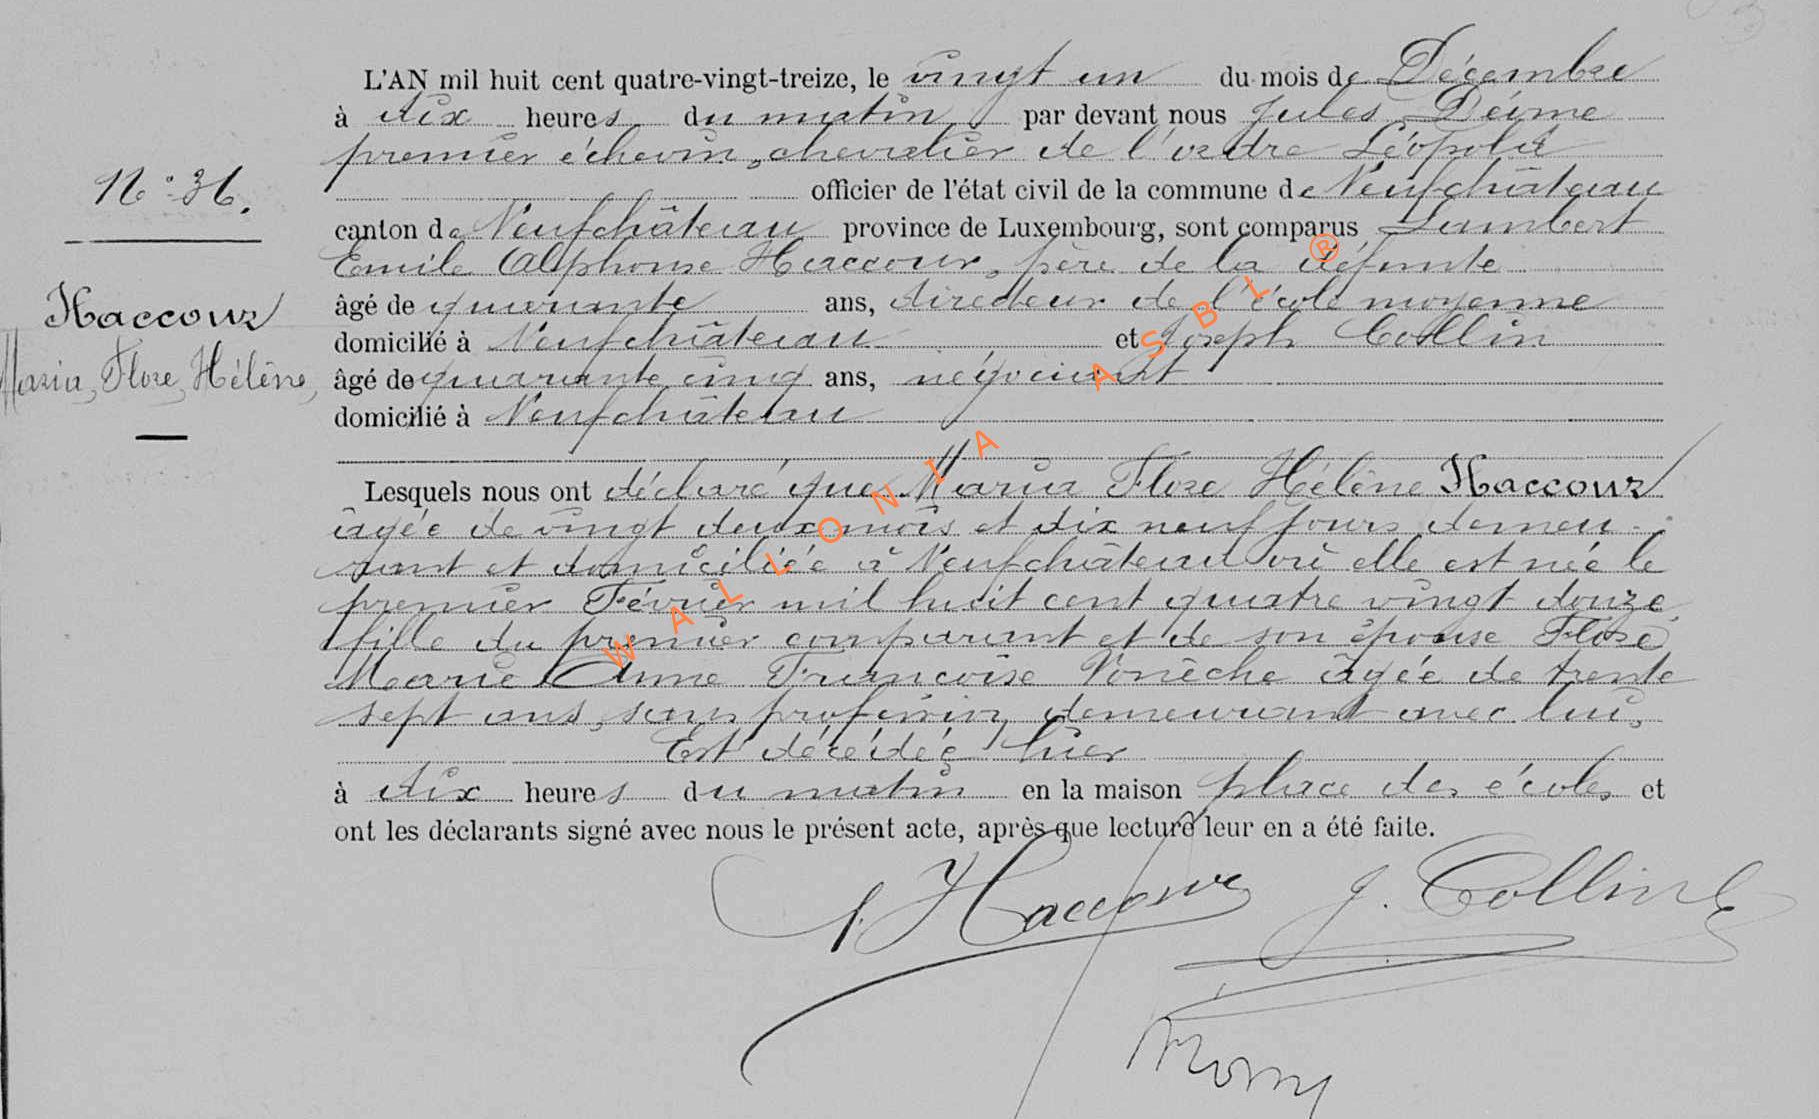 L'AN mil huit cent quatre-vingt-treize, le vingt un du mois de Décembre
à dix heures du matin par devant nous Jules
premier échevin, chevalier de l'ordre Léopold
officier de l'état civil de la commune de Neufchâteau
N° 36.
canton de Neufchâteau province de Luxembourg, sont comparus Lambert
Emile Alphonse Haccour, père de la défunte
Haccour
Maria, Flore, Hélène,
âgé de quarante ans, directeur de l'école moyenne
domicilié à Neufchâteau et Joseph Collin
âgé de quarante cinq ans, négociant
domicilié à Neufchâteau
Lesquels nous ont déclaré que Maria Flore Hélène Haccour
âgée de vingt deux mois et dix neuf jours demeu-
rant et domiciliée à Neufchâteau où elle est née le
premier Février mil huit cent quatre vingt douze,
fille du premier comparant et de son épouse Flore
Marie Anne Françoise Vonêche âgée de trente
sept ans, sans profession, demeurant avec lui,
Est décédée hier
à dix heures du matin en la maison place des écoles et
ont les déclarants signé avec nous le présent acte, après que lecture leur en a été faite.
Haccour J. Collin
WALLONIA ASBL ®